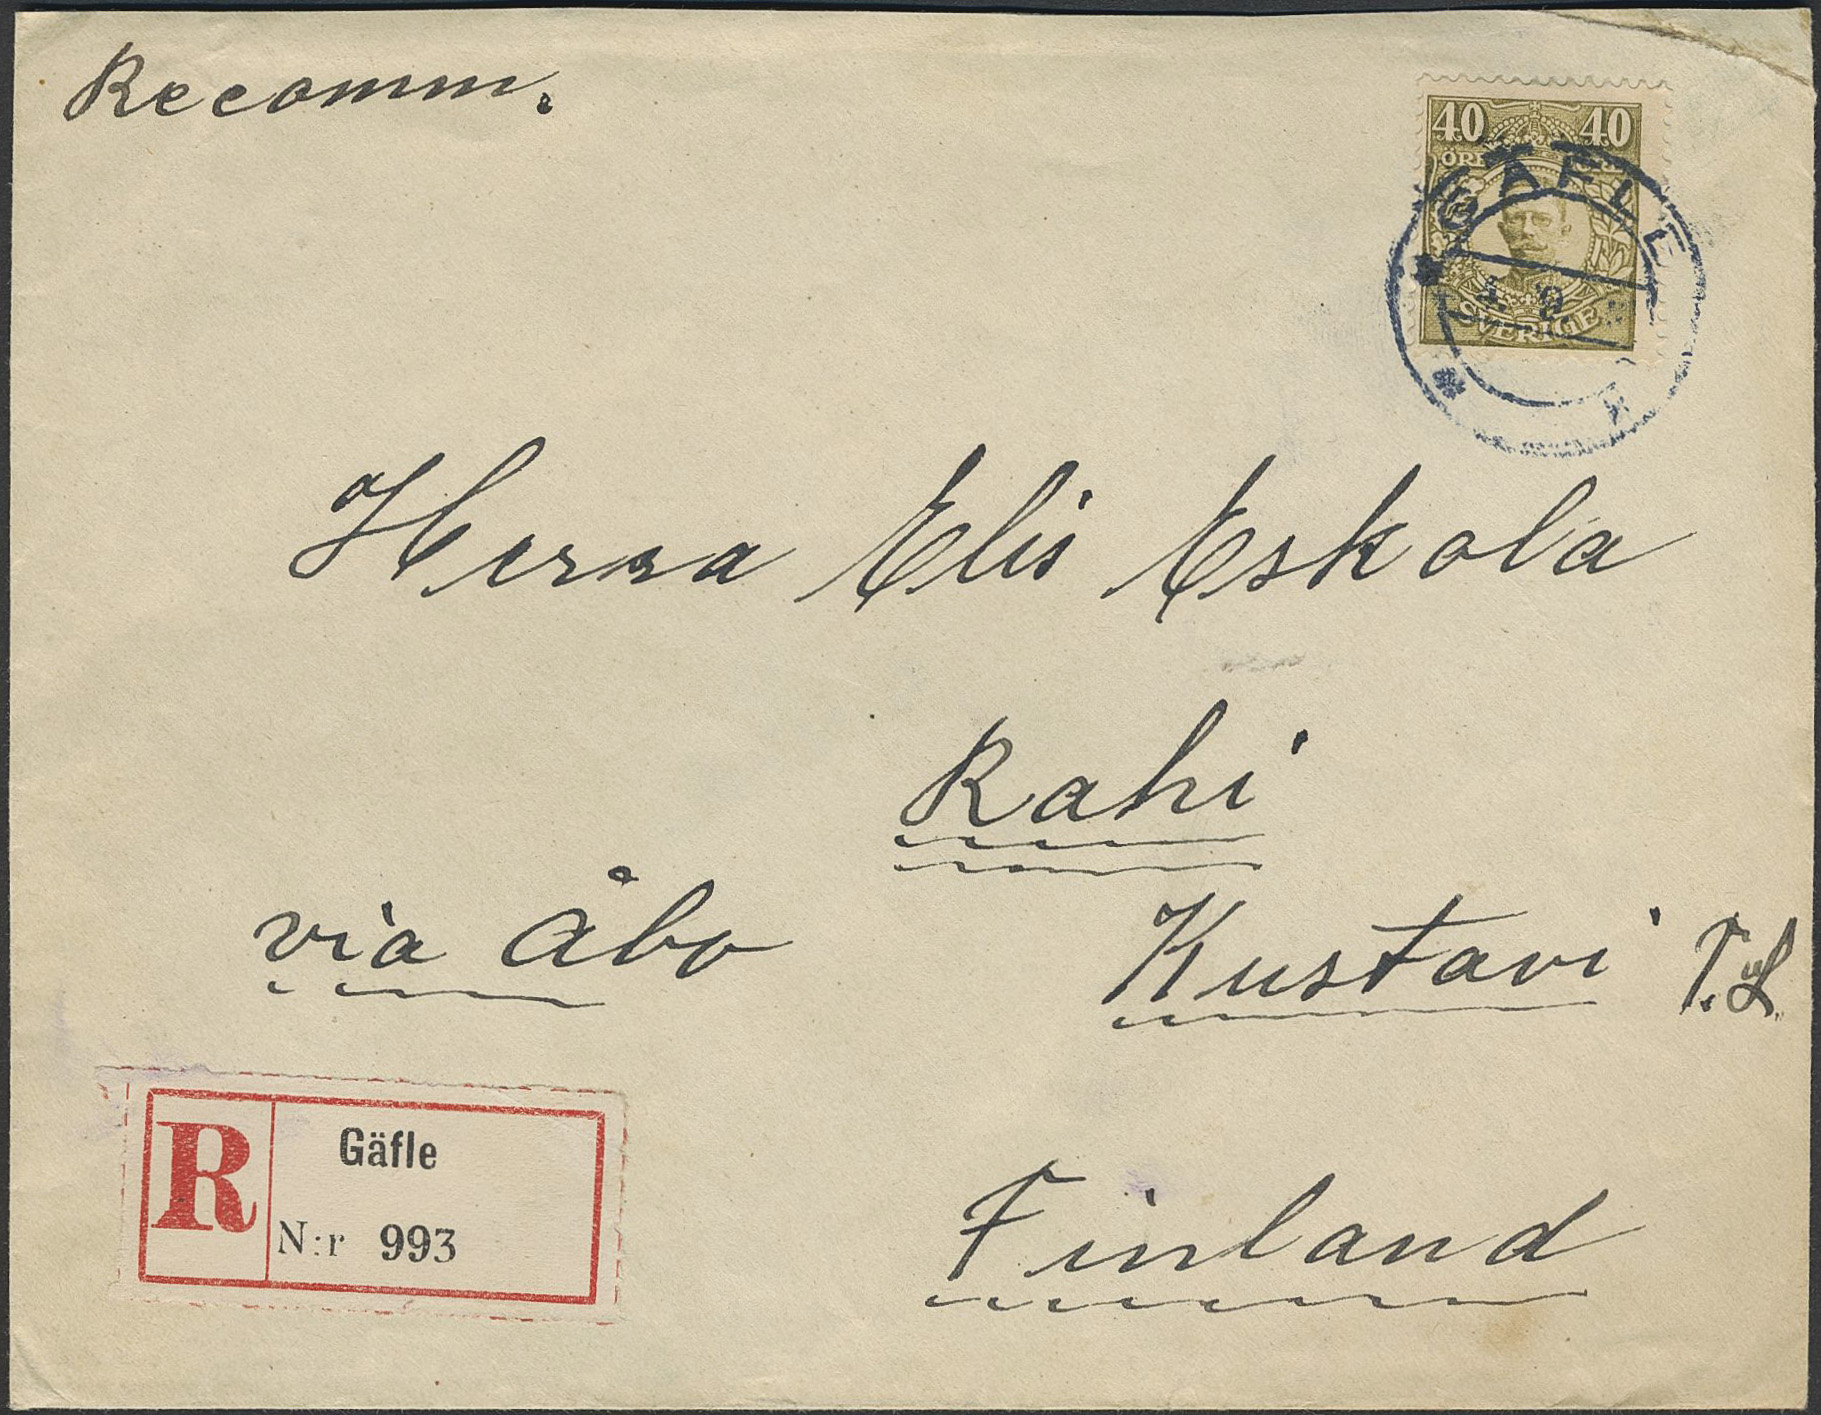 Recomm.
40 40
ÖRE
GÄFLE
SVERIGE
Herra Elis Eskola
Rahi
via Åbo
Kustavi T.L.
R
Gäfle
N:r 993
Finland